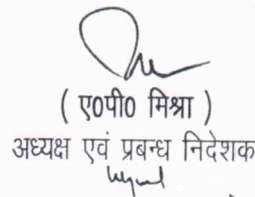 ( ए0पी0 मिश्रा )
अध्यक्ष एवं प्रबन्ध निदेशक